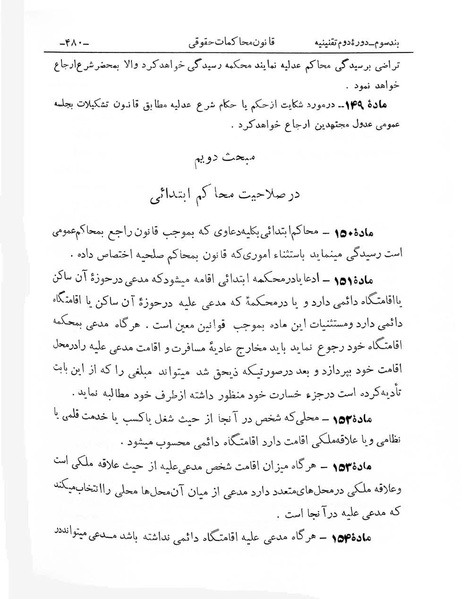 بندسوم_دورهٔ دوم تقنینیه قانون محاکمات حقوقی -۴۸۰-
تراضی برسیدگی محاکم عدلیه نمایند محکمه رسیدگی خواهدکرد والا بمحضر شرع ارجاع
خواهد نمود .
مادهٔ ۱۴۹_ درمورد شکایت ازحکم یا حکام شرع عدلیه مطابق قانون تشکیلات بجلسه
عمومی عدول مجتهدین ارجاع خواهدکرد .
مبحث دویم
در صلاحیت محاکم ابتدائی
مادهٔ ۱۵۰ - محاکم ابتدائی بکلیه دعاوی که بموجب قانون راجع بمحاکم عمومی
است رسیدگی مینماید باستثناء اموری‌که قانون بمحاکم صلحیه اختصاص داده .
مادهٔ ۱۵۱ - ادعا یا در محکمه ابتدائی اقامه میشود که مدعی در حوزهٔ آن ساکن
یا اقامتگاه دائمی دارد و یا درمحکمهٔ که مدعی علیه درحوزهٔ آن ساکن یا اقامتگاه
دائمی دارد ومستثنیات این ماده بموجب قوانین معین است . هرگاه مدعی بمحکمه
اقامتگاه خود رجوع نماید باید مخارج عادیهٔ مسافرت و اقامت مدعی علیه رادرمحل
اقامت خود بپردازد و بعد درصورتیکه ذیحق شد میتواند مبلغی را که از این بابت
تأدیه کرده است درجزء خسارت خود منظور داشته ازطرف خود مطالبه نماید .
مادهٔ ۱۵۲ - محلی‌که شخص در آنجا از حیث شغل یاکسب یا خدمت قلمی یا
نظامی ویا علاقه ملکی اقامت دارد اقامتگاه دائمی محسوب میشود .
مادهٔ ۱۵۳ - هرگاه میزان اقامت شخص مدعی علیه از حیث علاقه ملکی است
وعلاقه ملکی درمحل‌های متعدد دارد مدعی از میان آن محل‌ها محلی را انتخاب میکند
که مدعی علیه درآنجا است .
مادهٔ ۱۵۴ - هرگاه مدعی علیه اقامتگاه دائمی نداشته باشد مدعی میتوانددر